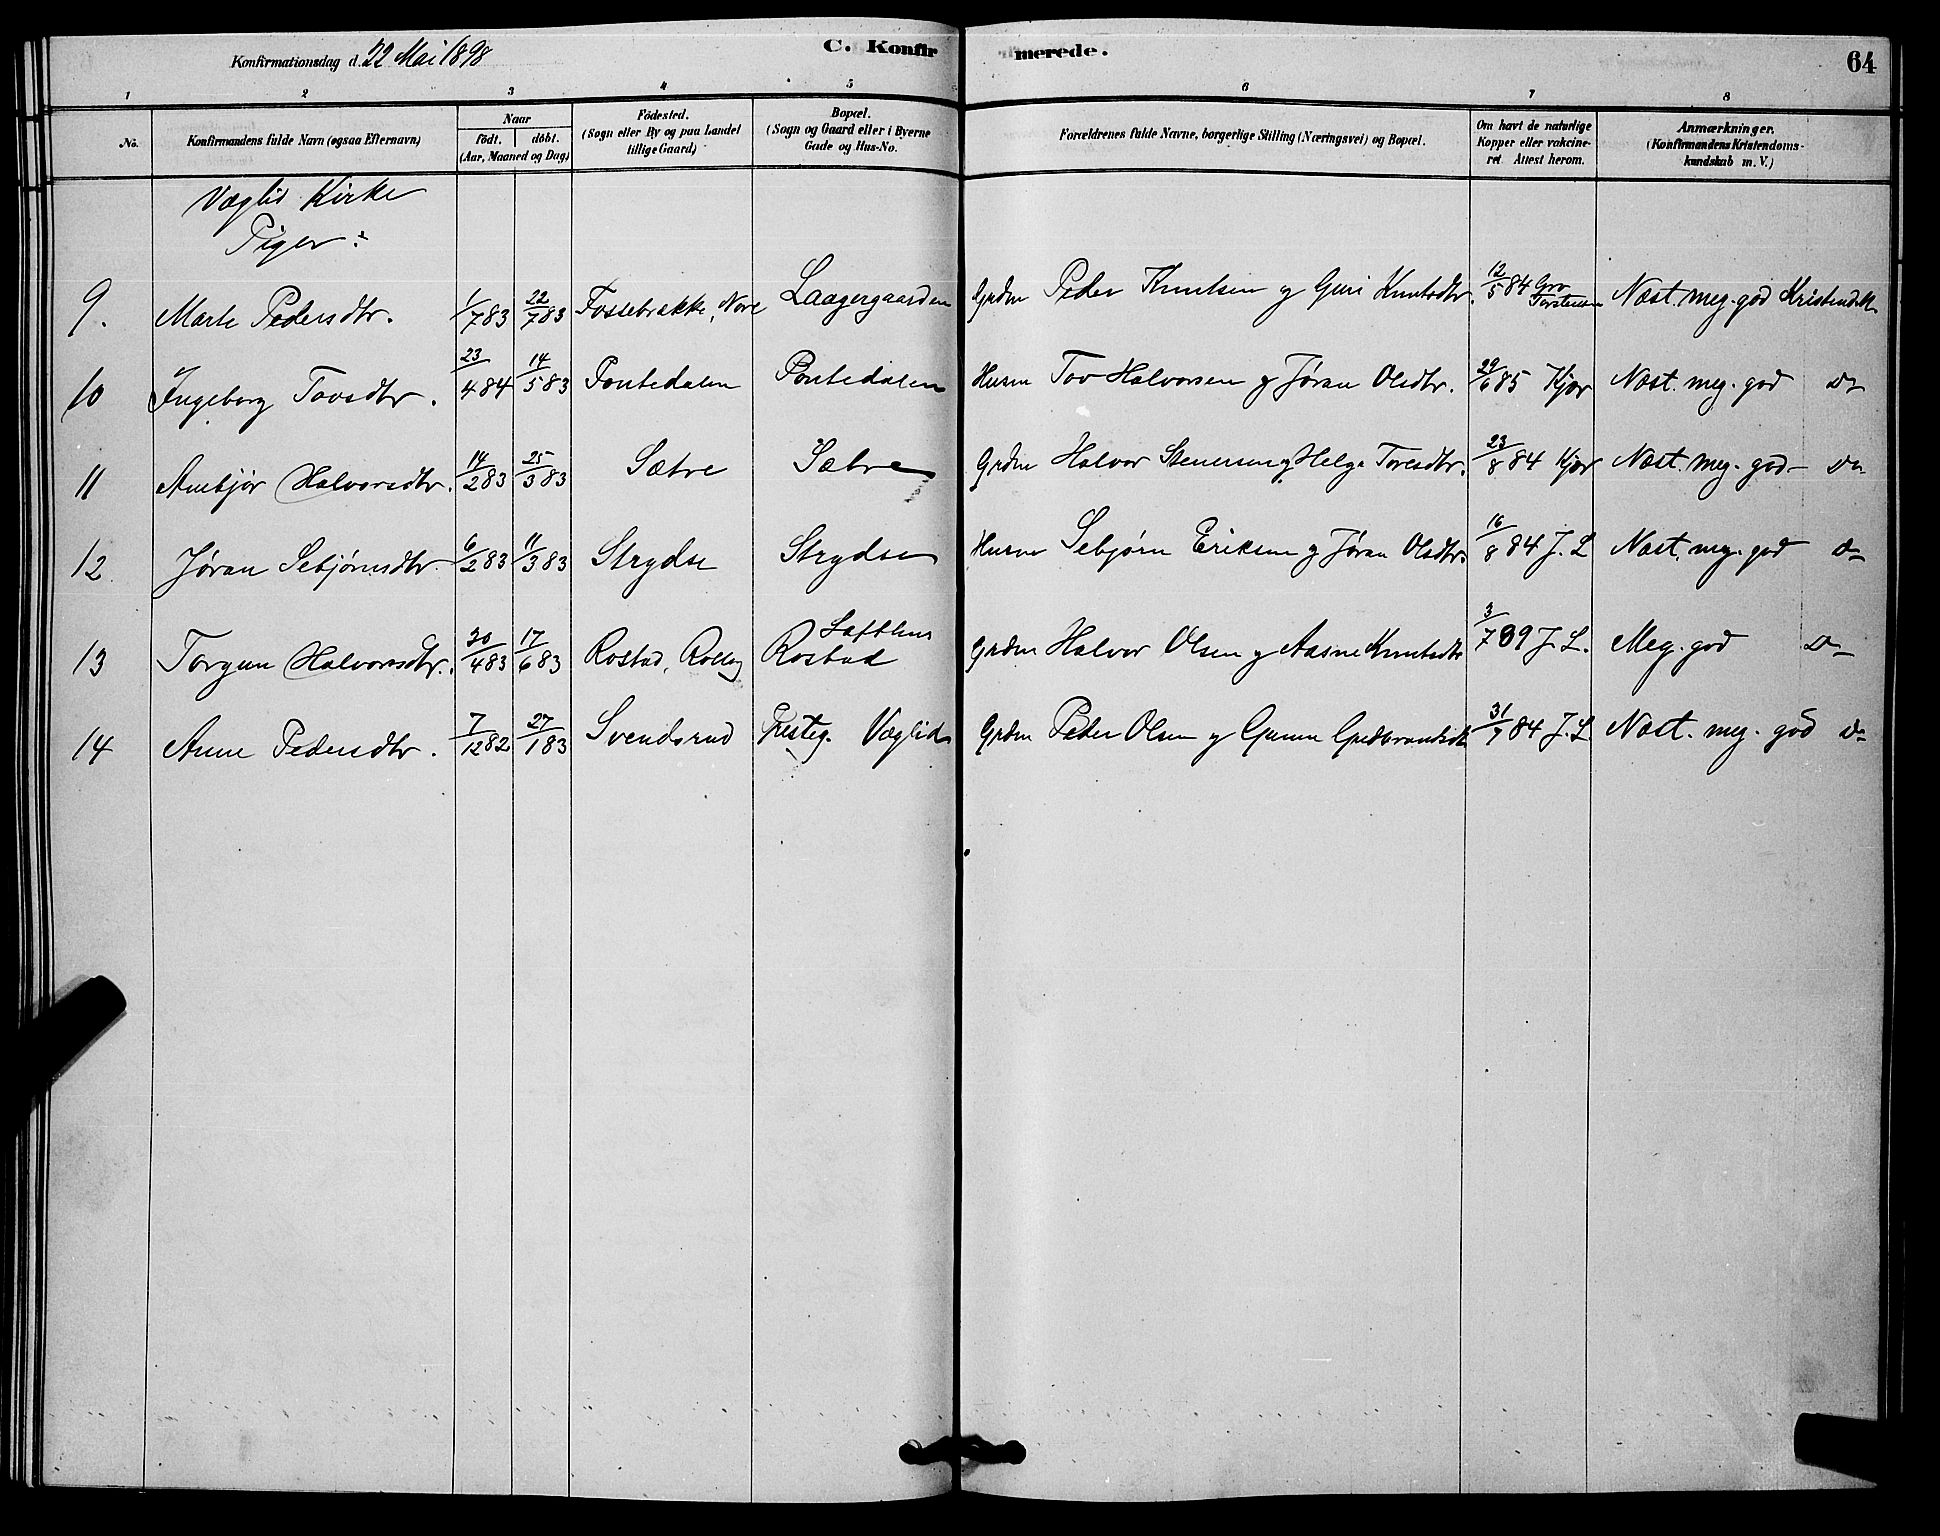 Konfirmationsdag d. 22 Mai 1898
C. Konfirmerede.
64
1 2 3 4 5 6 7 8
No.
Konfirmandens fulde Navn (ogsaa Efternavn)
Naar
födt. döbt.
(Aar, Maaned og Dag)
Födested.
(Sogn eller By og paa Landet
tillige Gaard)
Bopæl.
(Sogn og Gaard eller i Byerne
Gade og Hus-No.
Forældrenes fulde Navne, borgerlige Stilling (Næringsvei) og Bopæl.
Om havt de naturlige
Kopper eller vakcine-
ret Attest herom.
Anmærkninger.
(Konfirmandens Kristendoms-
kundskab m. V.)
Væglid Kirke
Piger:
9. Marte Pedersdtr. 1/7 83 22/7 83 Fossebrække, Nore Laagergaarden Grdm Peder Knutsen og Guri Knutsdtr. 12/5 84 Gro Torstensen Næst. meg. god Kristendsk
10 Ingeborg Tovsdtr. 23/4 84 14/5 83 Pontedalen Pontedalen Husm Tov Halvorsen og Jøran Olsdtr. 29/6 85 Kjær Næst. meg. god Do
11 Anbjør Halvorsdtr. 14/2 83 25/3 83 Sætre Sætre Grdm Halvor Stenersen og Helga Toresdtr. 23/8 84 Kjær Næst. meg. god – Do
12. Jøran Sebjørnsdtr. 6/2 83 11/3 83 Strydse Strydse Husm Sebjørn Eriksen og Jøran Olsdtr. 16/8 84 J. L Næst. meg. god Do
13 Torgun Halvorsdtr. 30/4 83 17/6 83 Rostad, Rollag Løfthus Rostad Grdm Halvor Olsen og Aasne Knutsdtr 3/7 89 J. L. Meg. god Do
14 Anne Pedersdtr. 7/12 82 27/1 83 Svendsrud Presteg. Væglid Grdm Peder Olsen og Gunn Gudbrandsdtr 31/7 84 J. L Næst. meg. god Do